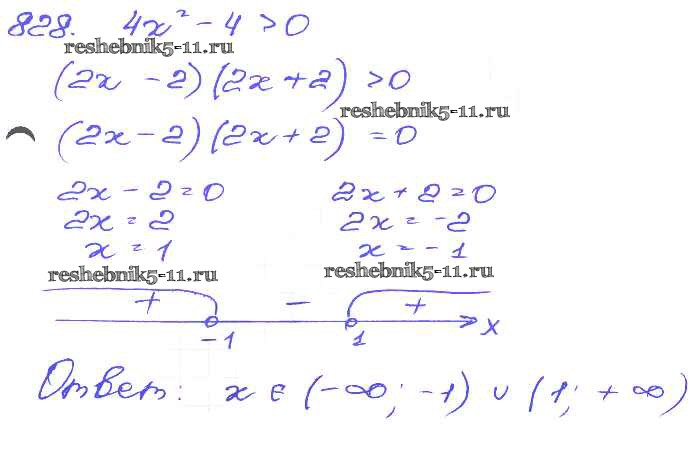 828. 4x² - 4 > 0
reshebnik5-11.ru
(2x - 2)(2x + 2) > 0
reshebnik5-11.ru
(2x - 2)(2x + 2) = 0
2x - 2 = 0 2x + 2 = 0
2x = 2 2x = -2
x = 1 x = -1
reshebnik5-11.ru reshebnik5-11.ru
+ - +
-1 1 x
Ответ: x ∈ (-∞; -1) ∪ (1; +∞)